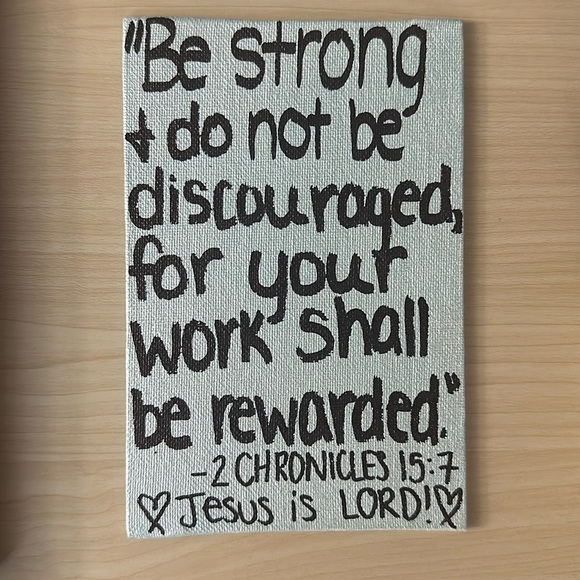 "Be strong
+ do not be
discouraged,
for your
work shall
be rewarded."
-2 CHRONICLES 15:7
♡ Jesus is LORD! ♡